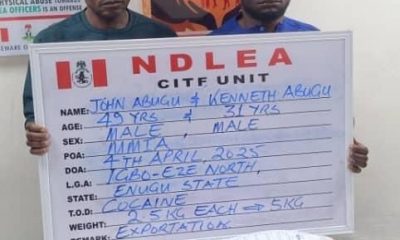 PHYSICAL ABUSE TOWARDS
OFFICERS IS AN OFFENSE
BEWARE
NDLEA
CITF UNIT
NAME: JOHN ABUGU & KENNETH ABUGU
AGE: 49 YRS & 31 YRS
SEX: MALE, MALE
POA: MMIA
DOA: 4TH APRIL, 2025
L.G.A: IGBO-EZE NORTH,
STATE: ENUGU STATE
T.O.D: COCAINE
WEIGHT: 2.5KG EACH => 5KG
REMARK: EXPORTATION